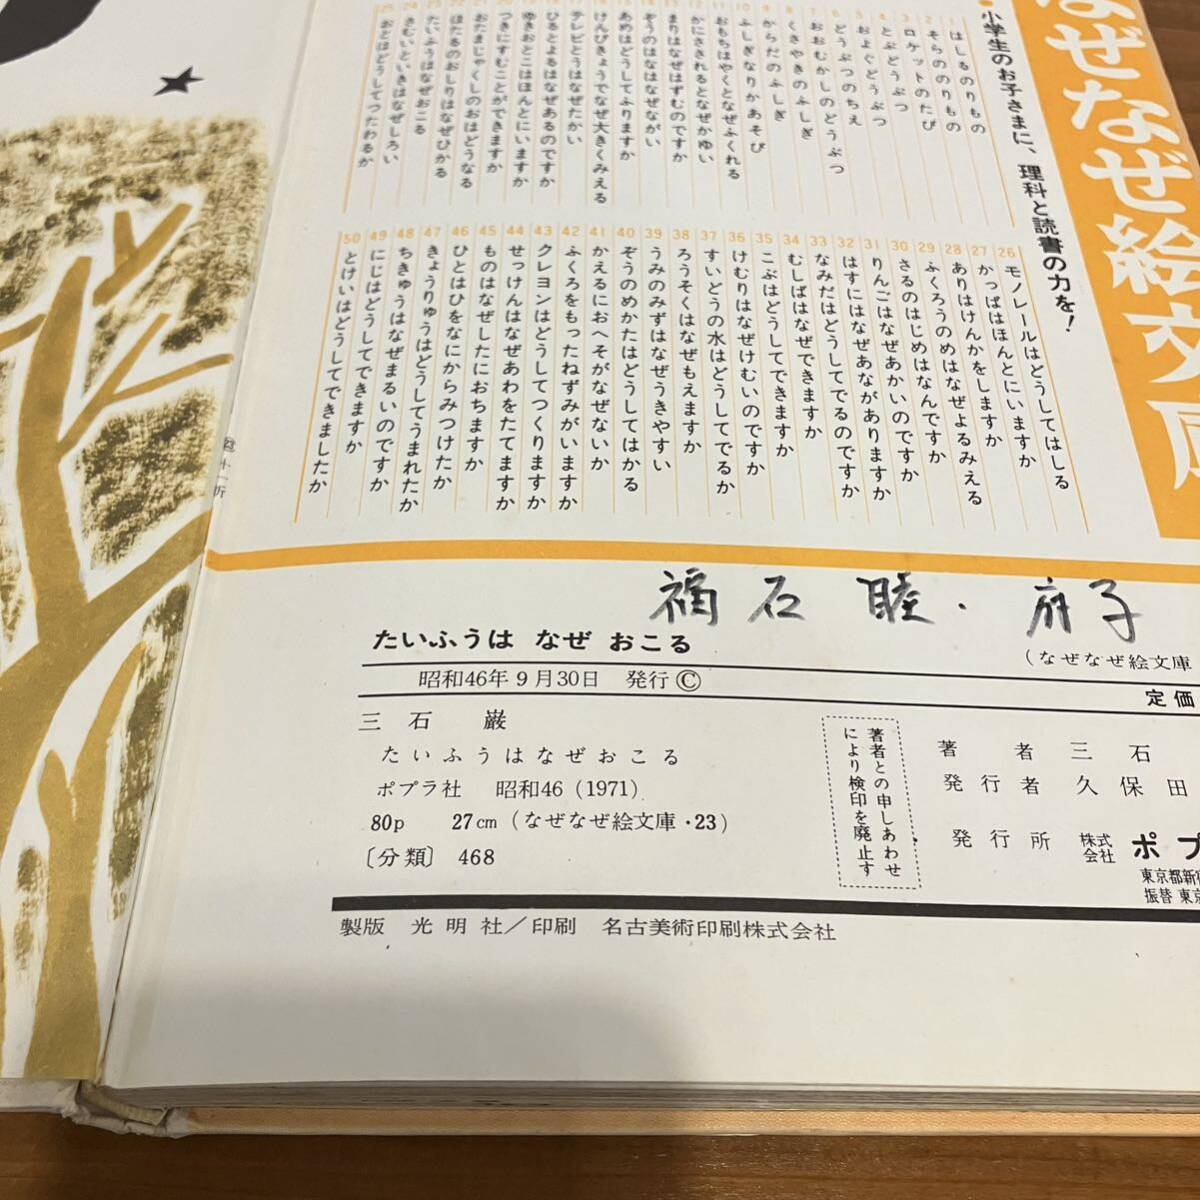 なぜなぜ絵文庫
小学生のお子さまに、理科と読書の力を!
1 はしるのりもの
2 そらののりもの
3 ロケットのたび
4 とぶどうぶつ
5 およぐどうぶつ
6 どうぶつのちえ
7 おおむかしのどうぶつ
8 くさやきのふしぎ
9 からだのふしぎ
10 ふしぎなりかあそび
11 おもちはやくとなぜふくれる
12 かにさされるとなぜかゆい
13 まりはなぜはずむのですか
14 ぞうのはなはなぜながい
15 あめはどうしてふりますか
16 けんびきょうでなぜ大きくみえる
17 テレビとうはなぜたかい
18 ひるとよるはなぜあるのですか
19 ゆきおとこはほんとにいますか
20 つきにすむことができますか
21 おたまじゃくしのおはどうなる
22 ほたるのおしりはなぜひかる
23 たいふうはなぜおこる
24 さむいといきはなぜしろい
25 おとはどうしてつたわるか
26 モノレールはどうしてはしる
27 かっぱはほんとにいますか
28 ありはけんかをしますか
29 ふくろうのめはなぜよるみえる
30 さるのはじめはなんですか
31 りんごはなぜあかいのですか
32 はすにはなぜあながありますか
33 なみだはどうしてでるのですか
34 むしばはなぜできますか
35 こぶはどうしてできますか
36 けむりはなぜけむいのですか
37 すいどうの水はどうしてでるか
38 ろうそくはなぜもえますか
39 うみのみずはなぜうきやすい
40 ぞうのめかたはどうしてはかる
41 かえるにおへそがなぜないか
42 ふくろをもったねずみがいますか
43 クレヨンはどうしてつくりますか
44 せっけんはなぜあわをたてますか
45 ものはなぜしたにおちますか
46 ひとはひをなにからみつけたか
47 きょうりゅうはどうしてうまれたか
48 ちきゅうはなぜまるいのですか
49 にじはどうしてできますか
50 とけいはどうしてできましたか
福石 睦・府子
たいふうは なぜ おこる
(なぜなぜ絵文庫
昭和46年9月30日 発行©
定価
三石 巌
たいふうはなぜおこる
ポプラ社 昭和46(1971)
80p 27cm(なぜなぜ絵文庫・23)
〔分類〕 468
著者との申しあわせ
により検印を廃止す
著者 三石
発行者 久保田
発行所 株式会社 ポプ
東京都新宿
振替 東京
製版 光明社/印刷 名古美術印刷株式会社